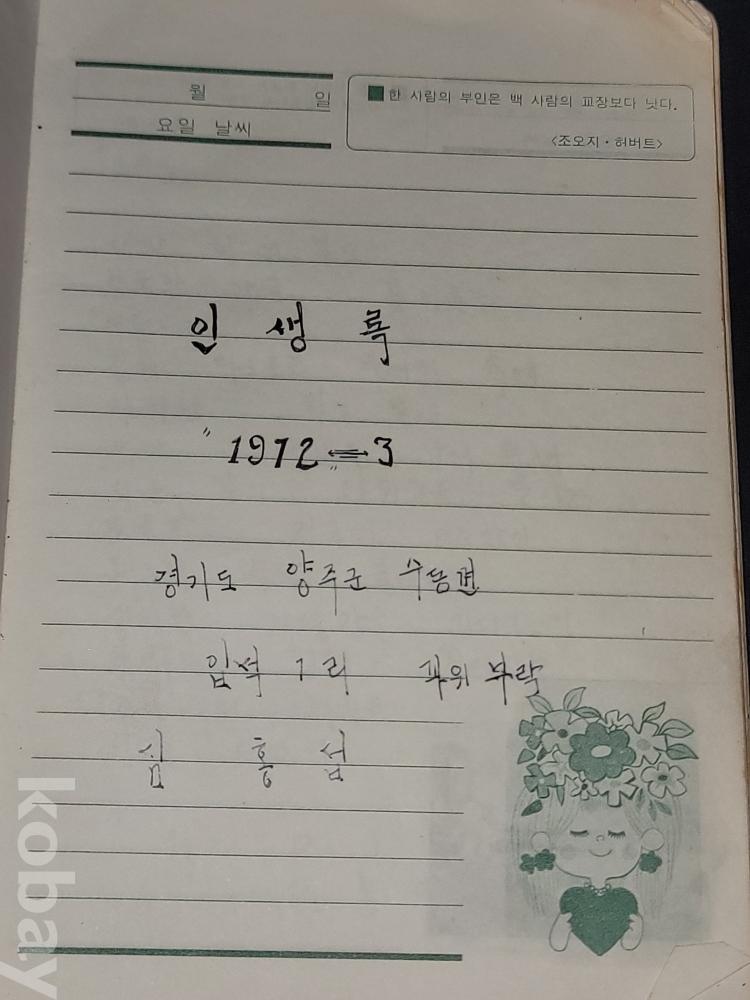 월 일
요일 날씨
■한 사람의 부인은 백 사람의 교장보다 낫다.
<조오지·허버트>
인 생 록
"1972 〃 3
경기도 양주군 수동면
입석 1 리 부락
심 흥 섭
kobay